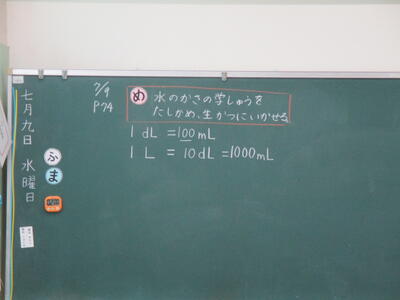 七月九日 水曜日
ふ
ま
7/9
P74
め 水のかさの学しゅうを
たしかめ、生かつにいかせる
1 dL = 100 mL
1 L = 10 dL = 1000 mL